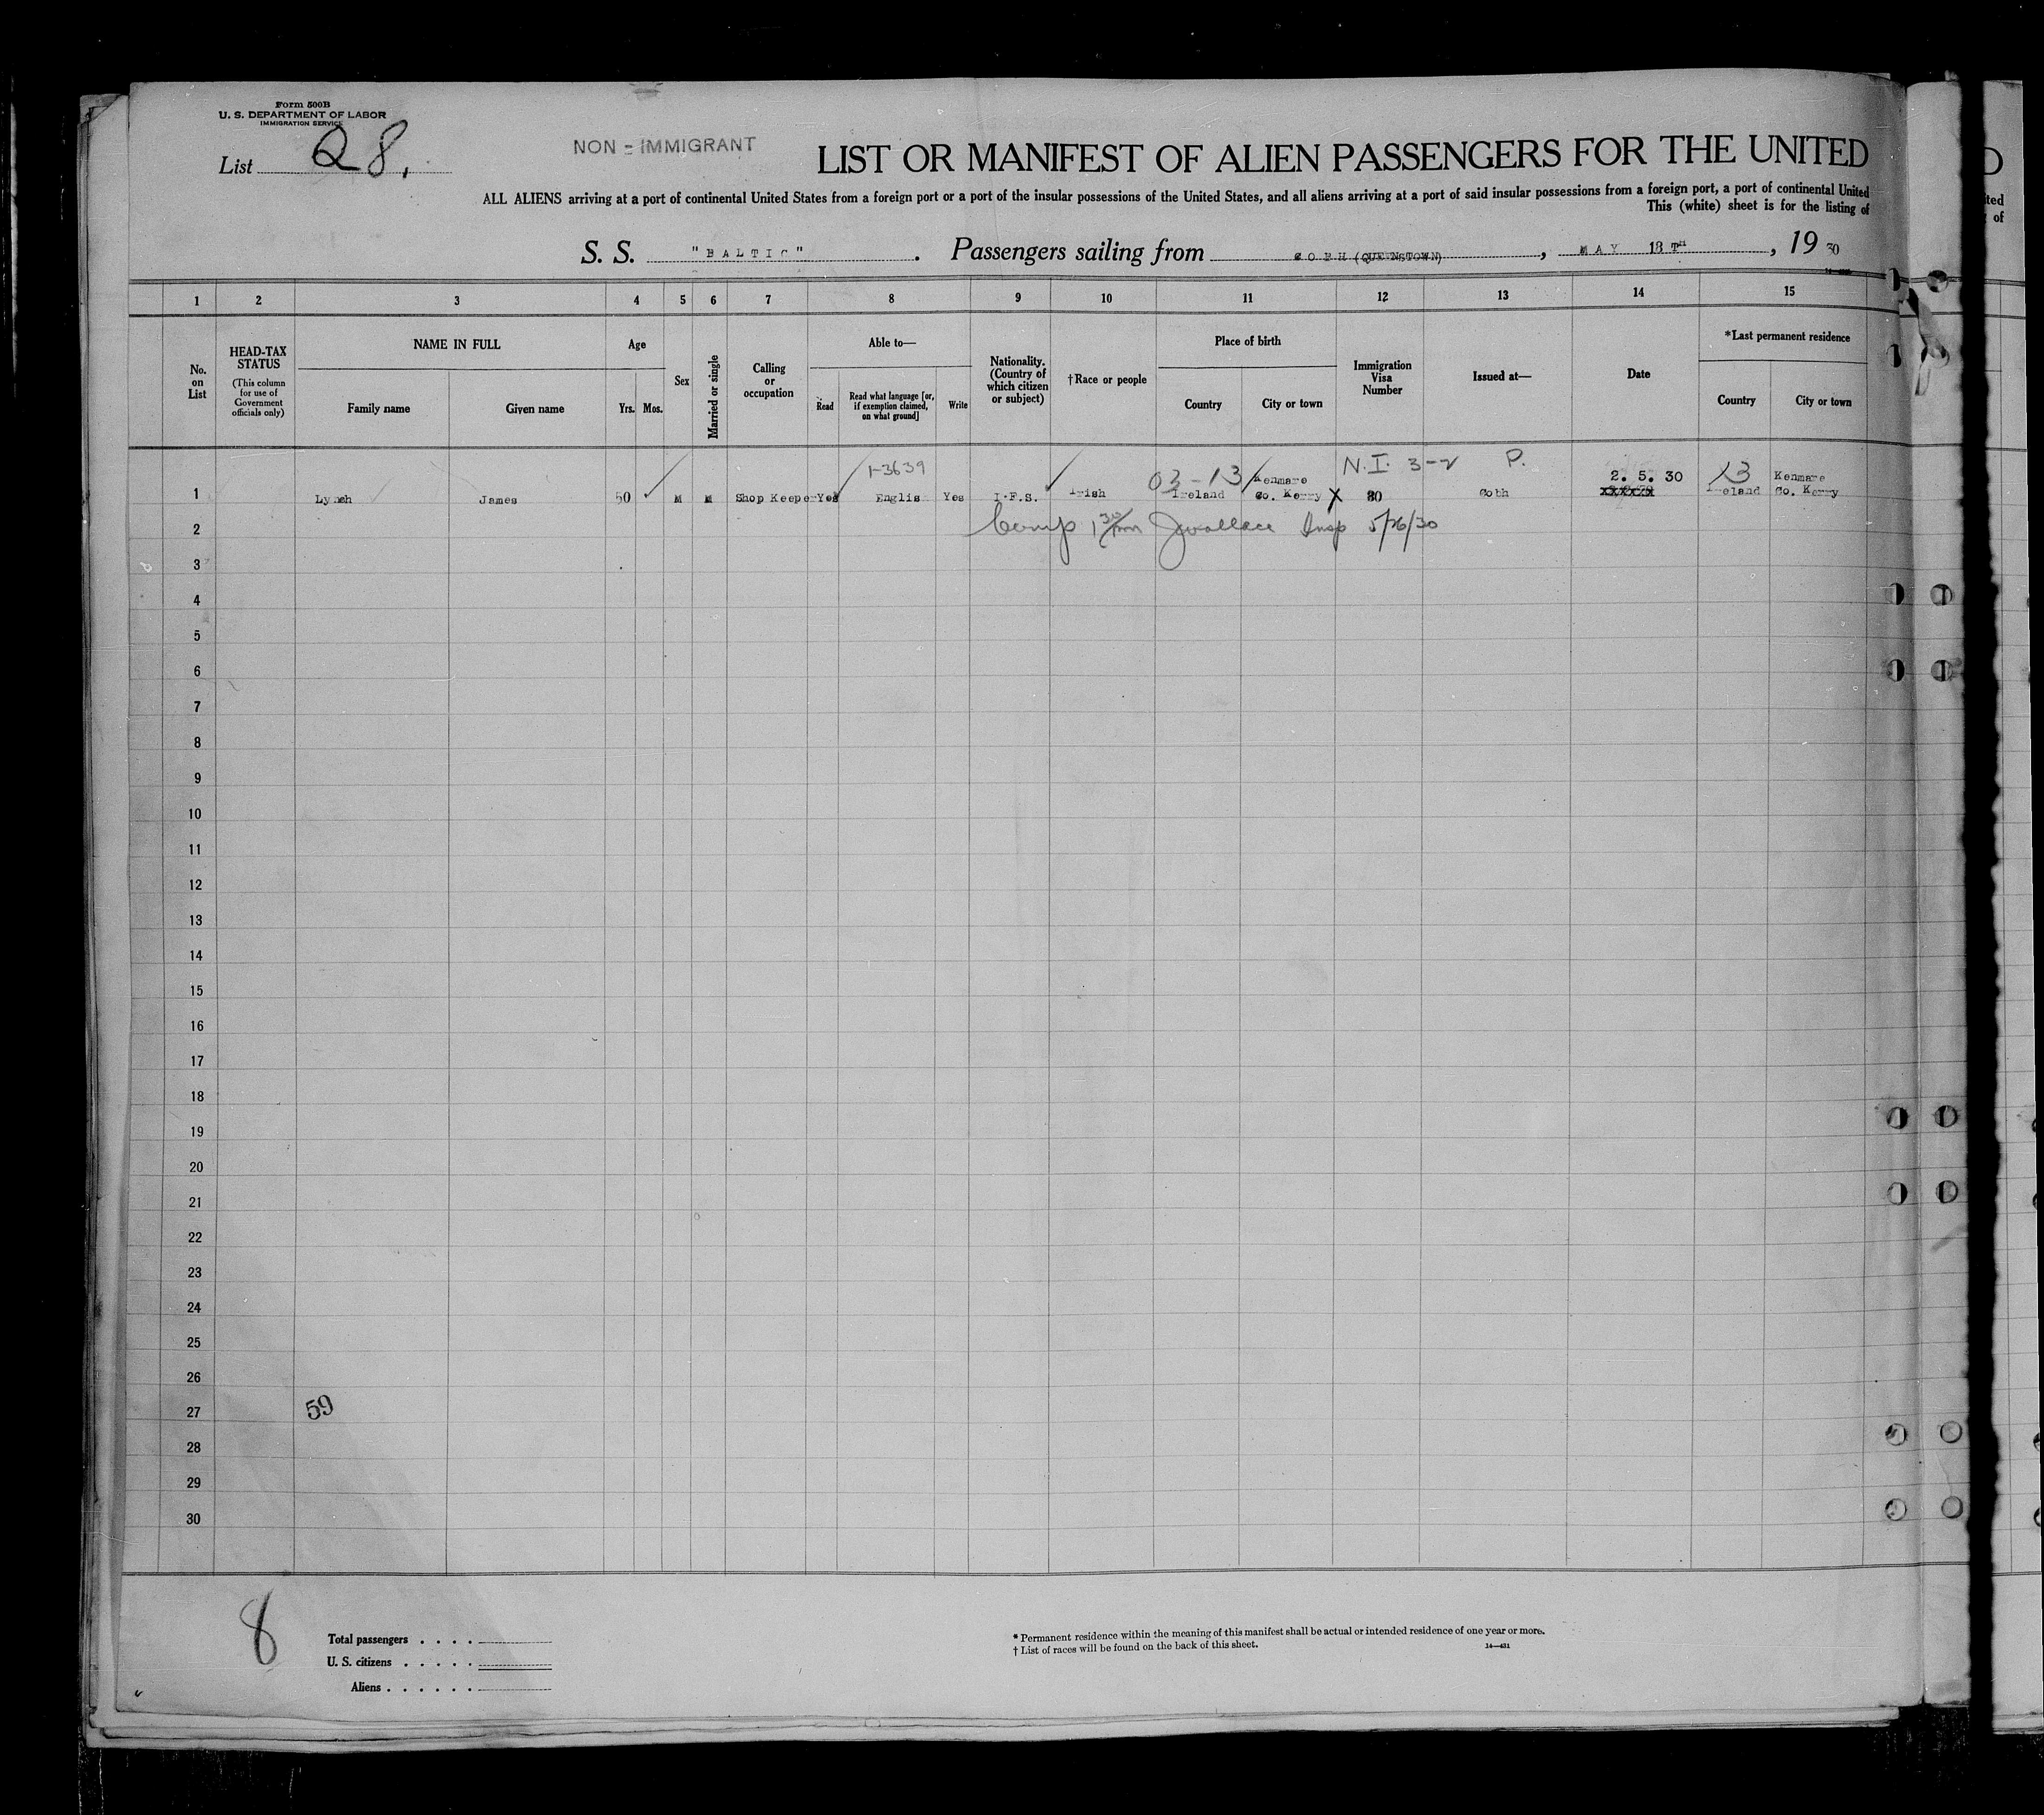 Form 500B
U. S. DEPARTMENT OF LABOR
IMMIGRATION SERVICE
List 28.
NON-IMMIGRANT
LIST OR MANIFEST OF ALIEN PASSENGERS FOR THE UNITED
ALL ALIENS arriving at a port of continental United States from a foreign port or a port of the insular possessions of the United States, and all aliens arriving at a port of said insular possessions from a foreign port, a port of continental United
This (white) sheet is for the listing of
S. S. "BALTIC". Passengers sailing from COBH (QUEENSTOWN), MAY 18TH, 19 30
1 2 3 4 5 6 7 8 9 10 11 12 13 14 15
No. on List
HEAD-TAX STATUS
(This column for use of Government officials only)
NAME IN FULL
Family name Given name
Age
Yrs. Mos.
Sex
Married or single
Calling or occupation
Able to—
Read
Read what language [or, if exemption claimed, on what ground]
Write
Nationality. (Country of which citizen or subject)
†Race or people
Place of birth
Country City or town
Immigration Visa Number
Issued at—
Date
*Last permanent residence
Country City or town
1-3639 03-13 Kenmare N.I. 3-2 P. 2. 5. 30 13 Kenmare
1 Lynch James 50 M M Shop Keeper Yes Englis Yes I.F.S. Irish Ireland Co. Kerry X 80 Cobh Ireland Co. Kerry
2 Jwallace Insp 5/26/30
3
4
5
6
7
8
9
10
11
12
13
14
15
16
17
18
19
20
21
22
23
24
25
26
27 59
28
29
30
8
Total passengers . . . .
U. S. citizens . . . . .
Aliens . . . . . .
* Permanent residence within the meaning of this manifest shall be actual or intended residence of one year or more.
† List of races will be found on the back of this sheet. 14—431